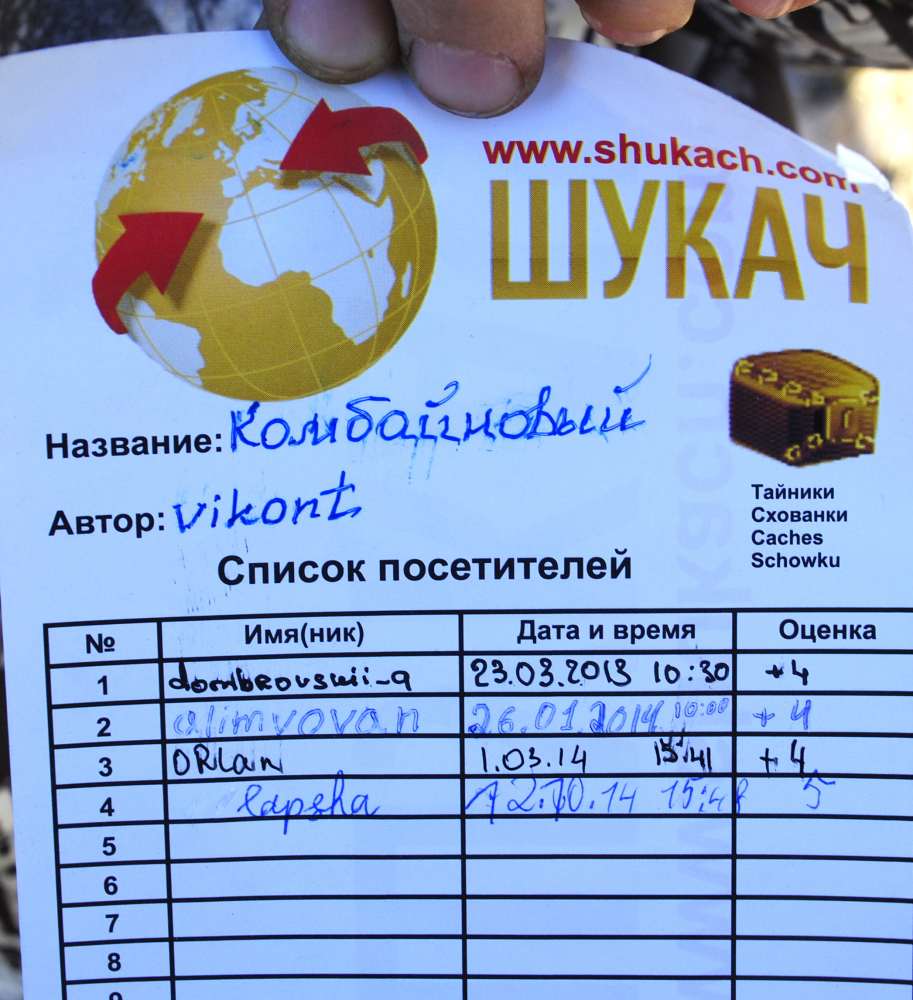 www.shukach.com
ШУКАЧ
Название: Комбайновый
Автор: vikont
Тайники
Схованки
Caches
Schowku
Список посетителей
№ Имя(ник) Дата и время Оценка
1 dombrovskii-a 23.03.2013 10:30 +4
2 alimvovan 26.01.2014 10:00 +4
3 ORlan 1.03.14 15:41 +4
4 lapsha 12.10.14 5
5
6
7
8
9